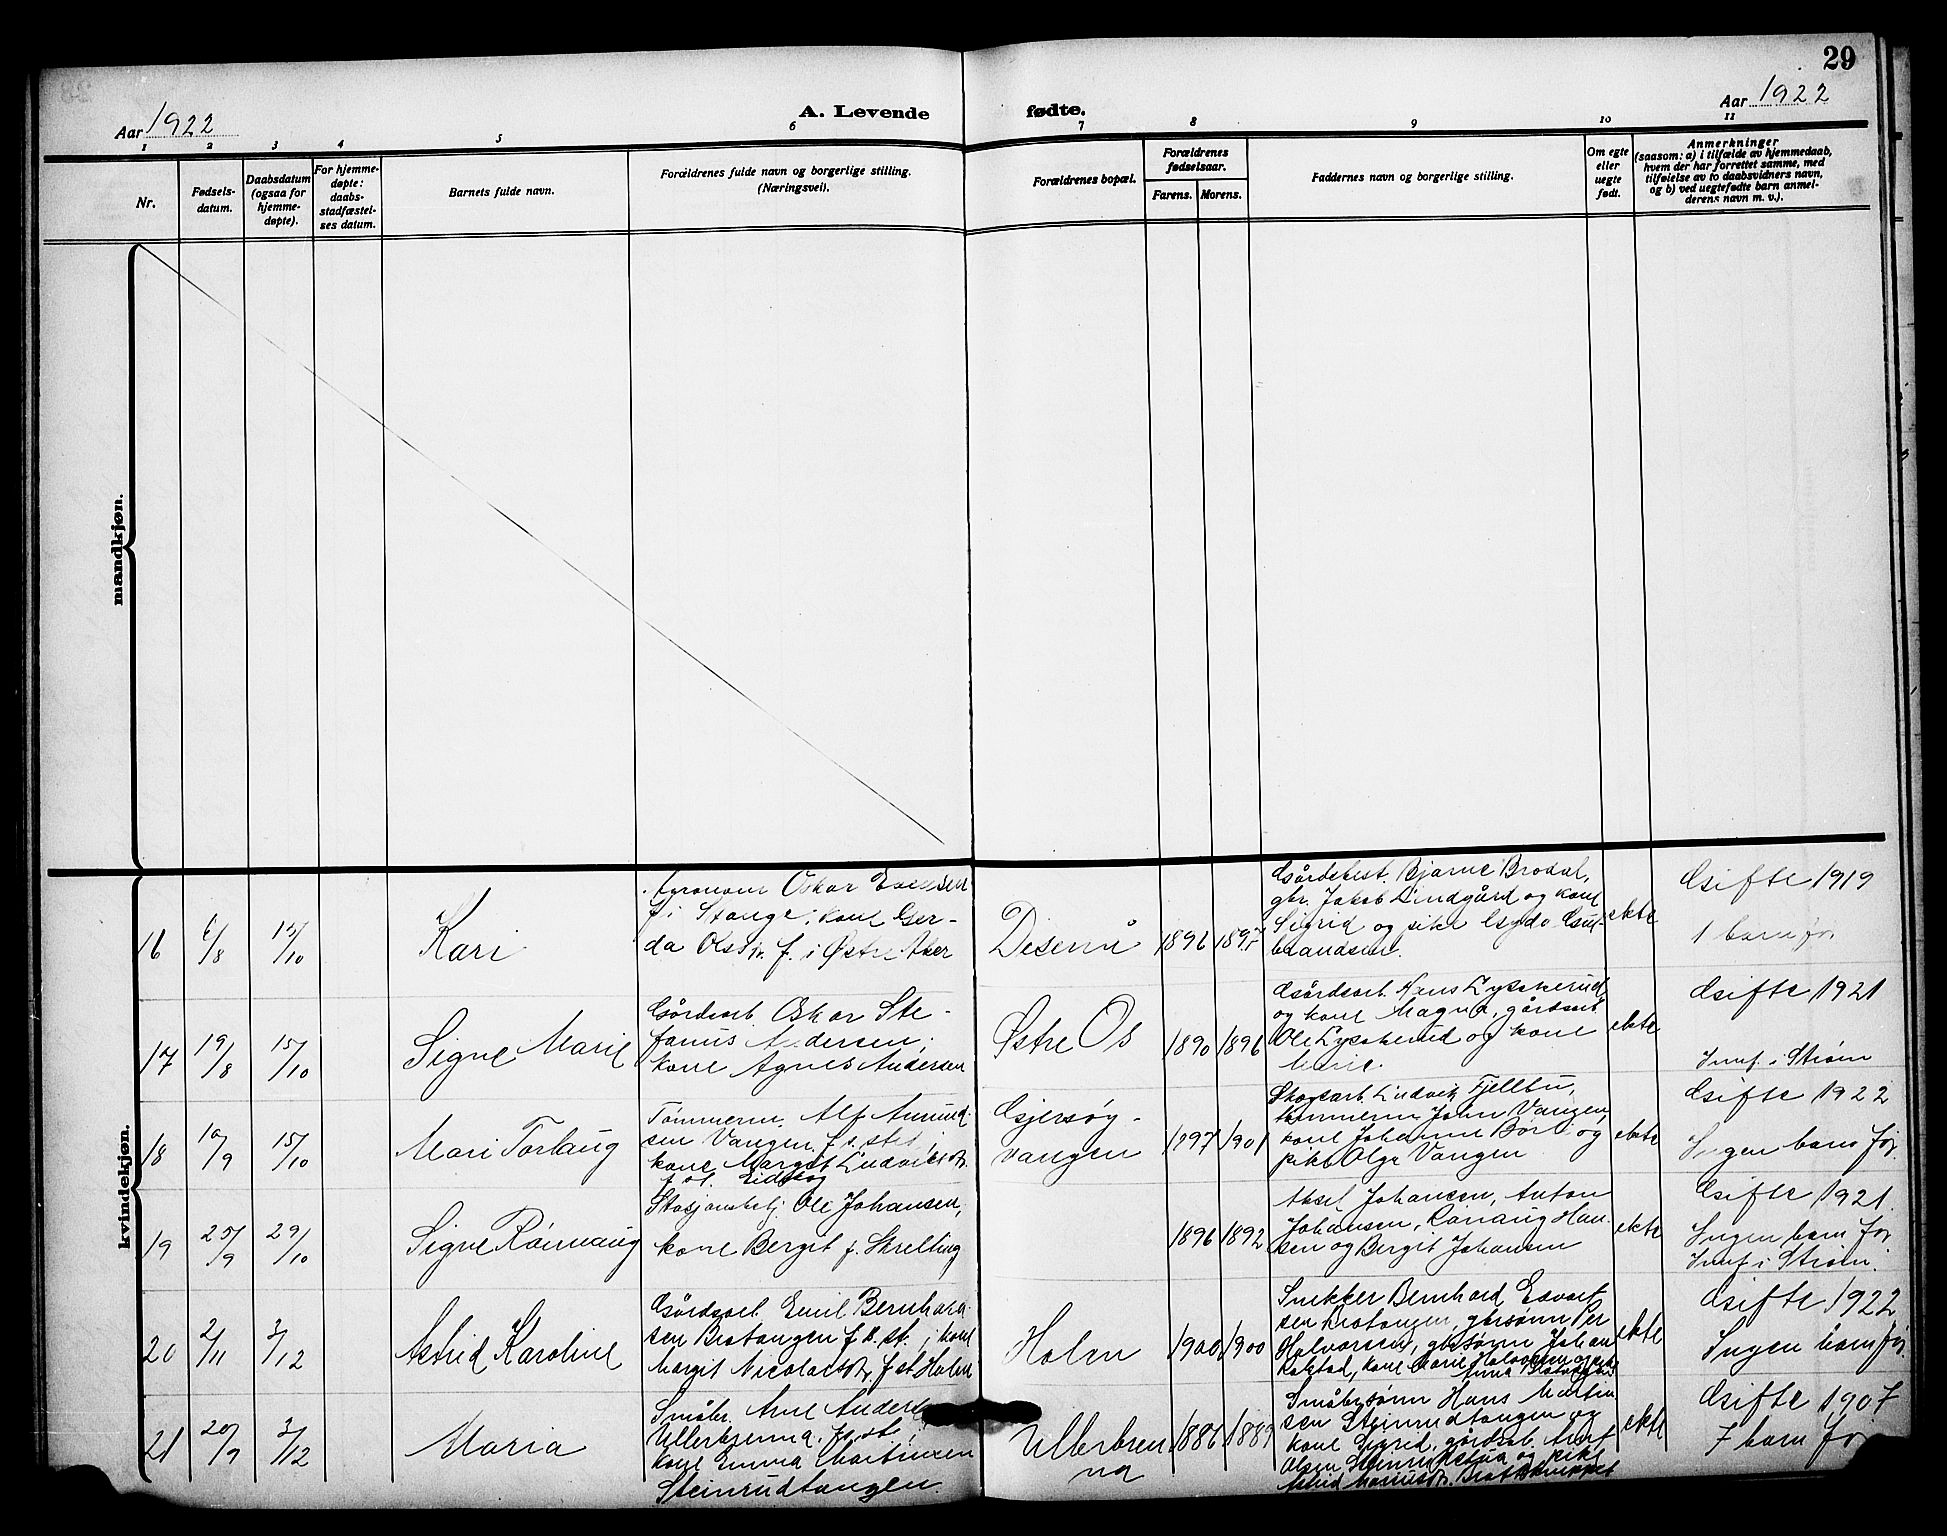 29
Aar 1922
A. Levende fødte.
Aar 1922
1 2 3 4 5 6 7 8 9 10 11
Nr.
Fødsels-
datum.
Daabsdatum
(ogsaa for
hjemme-
døpte).
For hjemme-
døpte:
daabs-
stadfæstel-
ses datum.
Barnets fulde navn.
Forældrenes fulde navn og borgerlige stilling.
(Næringsvei).
Forældrenes bopæl.
Forældrenes
fødselsaar.
Farens. Morens.
Faddernes navn og borgerlige stilling.
Om egte
eller
uegte
født.
Anmerkninger
(saasom: a) i tilfælde av hjemmedaab,
hvem der har forrettet samme, med
tilføielse av to daabsvidners navn,
og b) ved uegtefødte barn anmel-
derens navn m. v.).
mandkjøn.
kvindekjøn.
16
6/8
15/10
Kari
Agronom Oskar Evensen
f. i Stange; kone Ger-
da Olsdtr. f. i Østre Aker
Desenå
1896
Gårdsbest. Bjarne Brodal,
gbr. Jakob Lindgård og kone
Sigrid og pike Gyda Gul-
brandsen.
ekte
Gifte 1919
1 barn før
17
19/8
15/10
Signe Marie
Gårdsarb. Oskar Ste-
fanus Andersen;
kone Agnes Andersen
Østre Os
1890 1896
Gårdsarb. Hans Lyskerud
og kone Magna, gårdsarb.
Ole Lyskerud og kone
Marie.
ekte
Gifte 1921
Innf. i Strøm
18
10/9
15/10
Mari Torlaug
Tømmerm. Alf Amund-
sen Vangen f. s. st.;
kone Margit Ludviksdtr.
f. st. Eidskog
Gjersøy-
vangen
1897 1901
Skogsarb. Ludvik Fjellbu,
tømmerm. John Vangen,
kone Johanne Børli og
pike Olga Vangen
ekte
Gifte 1922
Ingen barn før
19
25/9
29/10
Signe Rønnaug
Stasjonsbetj. Ole Johansen,
kone Bergit f. Skrelting
1896 1892
Aksel Johansen, Anton
Johansen, Rønnaug Han-
sen og Bergit Johansen
ekte
Gifte 1921.
Ingen barn før
Innf. i Strøm.
20
2/11
3/12
Astrid Karoline
Gårdsarb. Emil Bernhard-
sen Brotangen f. s. st.; kone
Margit Nicolaisdtr. f. st. Holm
Holm
1900 1900
Snekker Bernhard Edvart-
sen Brotangen, gbrsønn Per
Halvorsen, gbrsønn Johan
kone Marie Halvorsen og
Anna
ekte
Gifte 1922
Ingen barn før
21
20/9
3/12
Maria
Småbr. Arne Anders
Ullerbrenna f. s. st.;
kone Emma Martinsen
Steinrudtangen.
Ullerbren
na
1886 1889
Småbrsønn Hans Martin-
sen Steinrudtangen og
kone Sigrid, gårdsarb.
Olsen og pike
Astrid
ekte
Gifte 1907
7 barn før